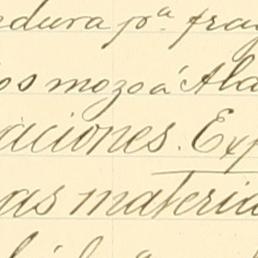 edura pª frag
os mozo á Ala
aciones. Exp
as materia